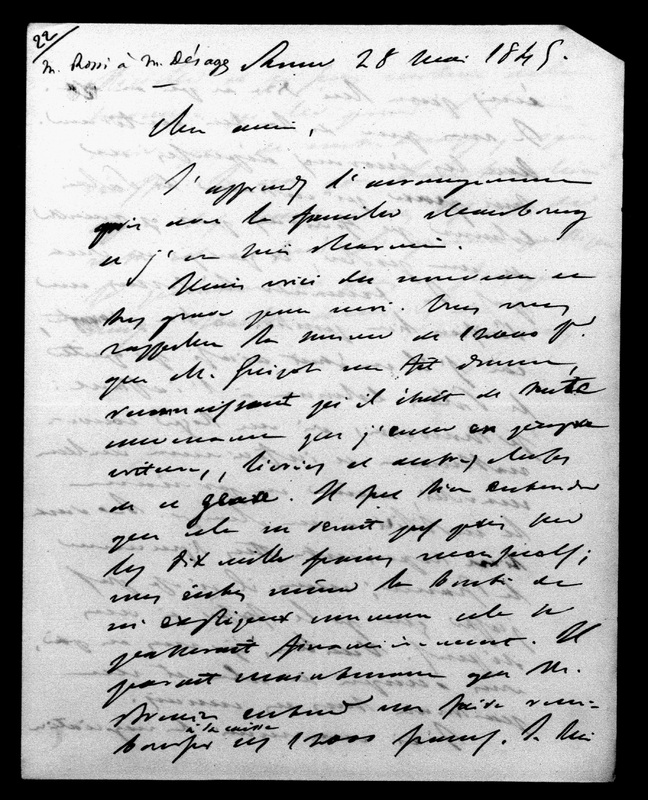 22
M. Rossi à M. Désages Rome 28 mai 1845.
Cher ami,
J'apprends l'arrangement
pris avec la famille
et j'en suis charmé.
Mais voici du nouveau et
très grave pour moi. Vous vous
rappelez la somme de 12000 fr.
que M. Guizot me fit donner,
reconnaissant qu'il était de toute
convenance que j'eusse en
voitures, livrées et autres choses
de ce genre. Il fut bien entendu
que cela ne serait pas pris sur
les dix mille francs mensuels;
vous eûtes même la bonté de
m'expliquer comment cela se
passerait financièrement. Il
paraît maintenant que M.
entend me faire rem-
bourser à la caisse ces 12000 francs. Je lui